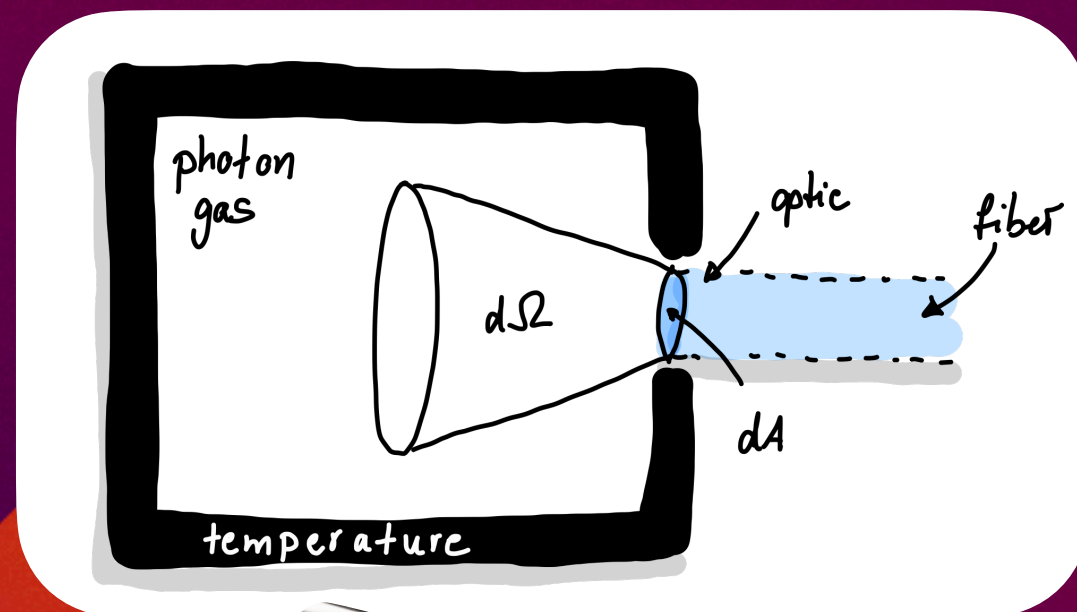 photon
gas
optic
fiber
dΩ
dA
temperature